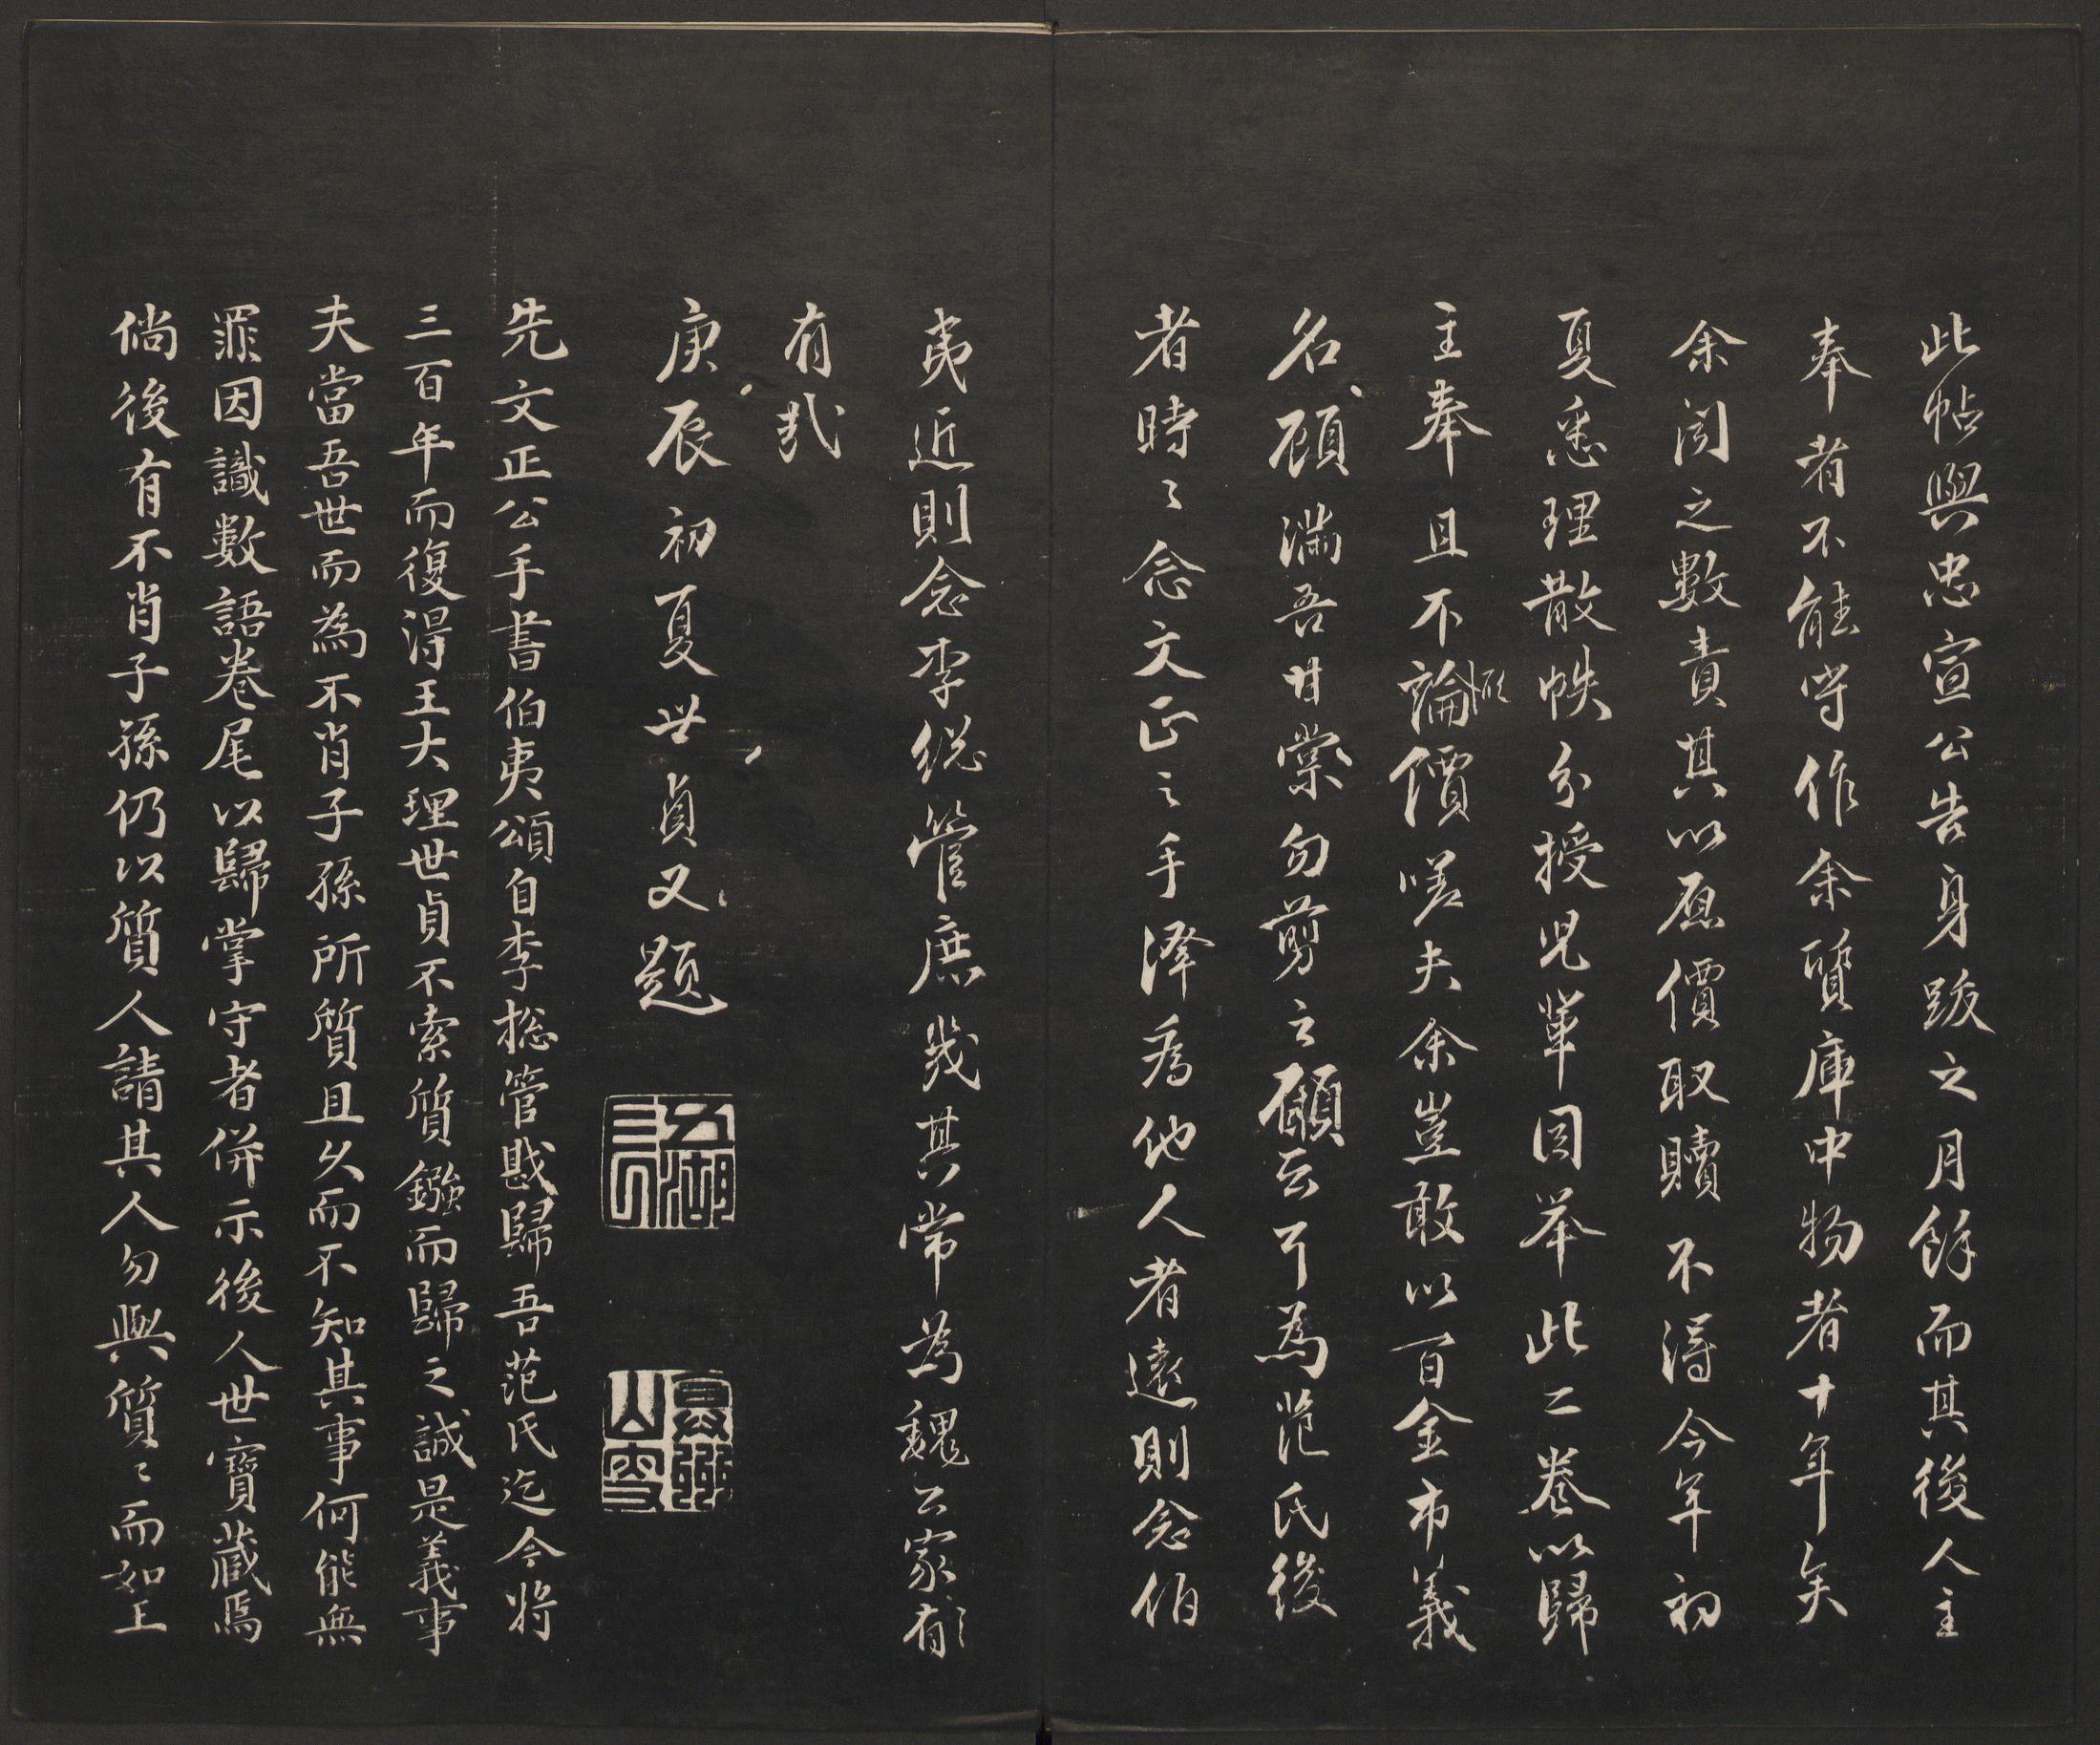 此帖與忠宣公告身跋之月餘而其後人主
奉者不能守作余質庫中物者十年矣
余閔之數責其以原價取贖不得今年初
夏悉理散帙分授兒輩因舉此二卷以歸
主奉且不論價嗟夫余豈敢以百金市義
名顧滿吾甘棠勿剪之願云耳為范氏後
者時〻念文正之手澤為他人者遠則念伯
夷近則念李總管庶幾其常為魏公家有
有哉
庚辰初夏世貞又題
五湖
弇州山
先文正公手書伯夷頌自李總管戩歸吾范氏迄今將
三百年而復得王大理世貞不索質鏹而歸之誠是義事
夫當吾世而為不肖子孫所質且久而不知其事何能無
罪因識數語卷尾以歸掌守者併示後人世寶藏焉
倘後有不肖子孫仍以質人請其人勿與質〻而如上